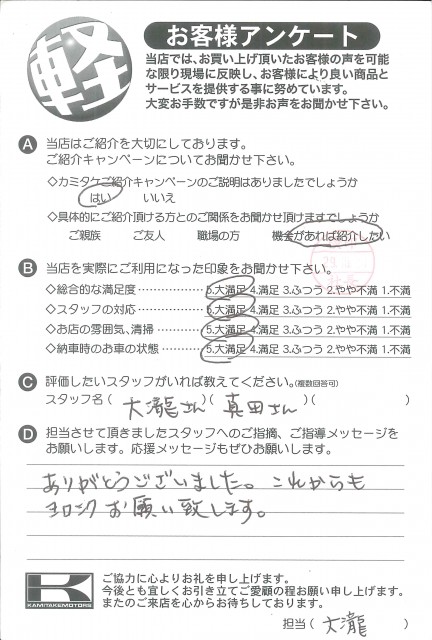 軽
お客様アンケート
当店では、お買い上げ頂いたお客様の声を可能
な限り現場に反映し、お客様により良い商品と
サービスを提供する事に努めています。
大変お手数ですが是非お声をお聞かせ下さい。
A 当店はご紹介を大切にしております。
ご紹介キャンペーンについてお聞かせ下さい。
◇カミタケご紹介キャンペーンのご説明はありましたでしょうか
はい いいえ
◇具体的にご紹介頂ける方とのご関係をお聞かせ頂けますでしょうか
ご親族 ご友人 職場の方 機会があれば紹介したい
B 当店を実際にご利用になった印象をお聞かせ下さい。
◇総合的な満足度………………5.大満足 4.満足 3.ふつう 2.やや不満 1.不満
◇スタッフの対応………………5.大満足 4.満足 3.ふつう 2.やや不満 1.不満
◇お店の雰囲気、清掃…………5.大満足 4.満足 3.ふつう 2.やや不満 1.不満
◇納車時のお車の状態…………5.大満足 4.満足 3.ふつう 2.やや不満 1.不満
C 評価したいスタッフがいれば教えてください。(複数回答可)
スタッフ名( 大瀧さん )( 真田さん )( )
D 担当させて頂きましたスタッフへのご指摘、ご指導メッセージを
お願いします。応援メッセージもぜひお願いします。
ありがとうございました。これからも
ヨロシクお願い致します。
K
KAMITAKEMOTORS
ご協力に心よりお礼を申し上げます。
今後とも宜しくお引き立てご愛顧の程お願い申し上げます。
またのご来店を心からお待ちしております。
担当( 大瀧 )